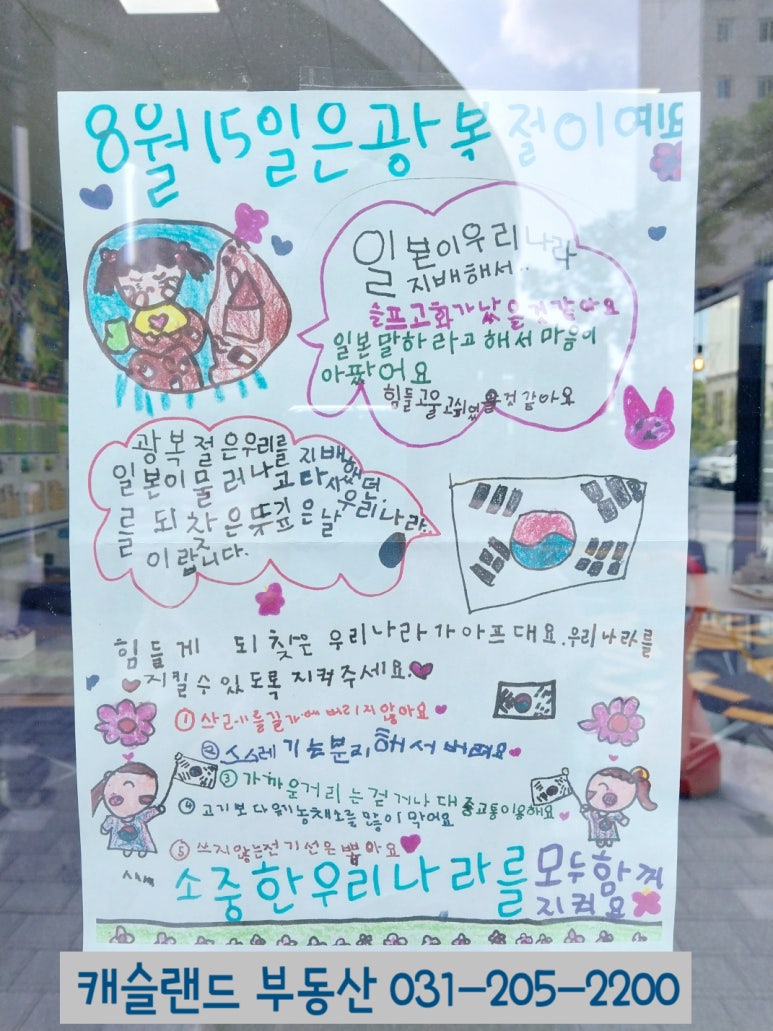 8월 15일은 광복절이예요
일본이 우리나라
지배해서..
슬프고 화가 났을것 같아요
일본말하라고 해서 마음이
아팠어요
힘들고 울고쉬었을것 같아요
광복절은 우리를 지배했던
일본이 물러나고 다시
우리나라
를 되찾은 뜻깊은 날
이랍니다.
힘들게 되찾은 우리나라가 아프대요. 우리나라를
지킬수 있도록 지켜주세요.
① 쓰레기를 길가에 버리지 않아요
② 쓰레기는 분리해서 버려요
③ 가까운거리는 걷거나 대중교통 이용해요
④ 고기보다 유기농채소를 많이 먹어요
⑤ 쓰지않는 전기선은 뽑아요
소중한 우리나라를 모두함께
지켜요
캐슬랜드 부동산 031-205-2200